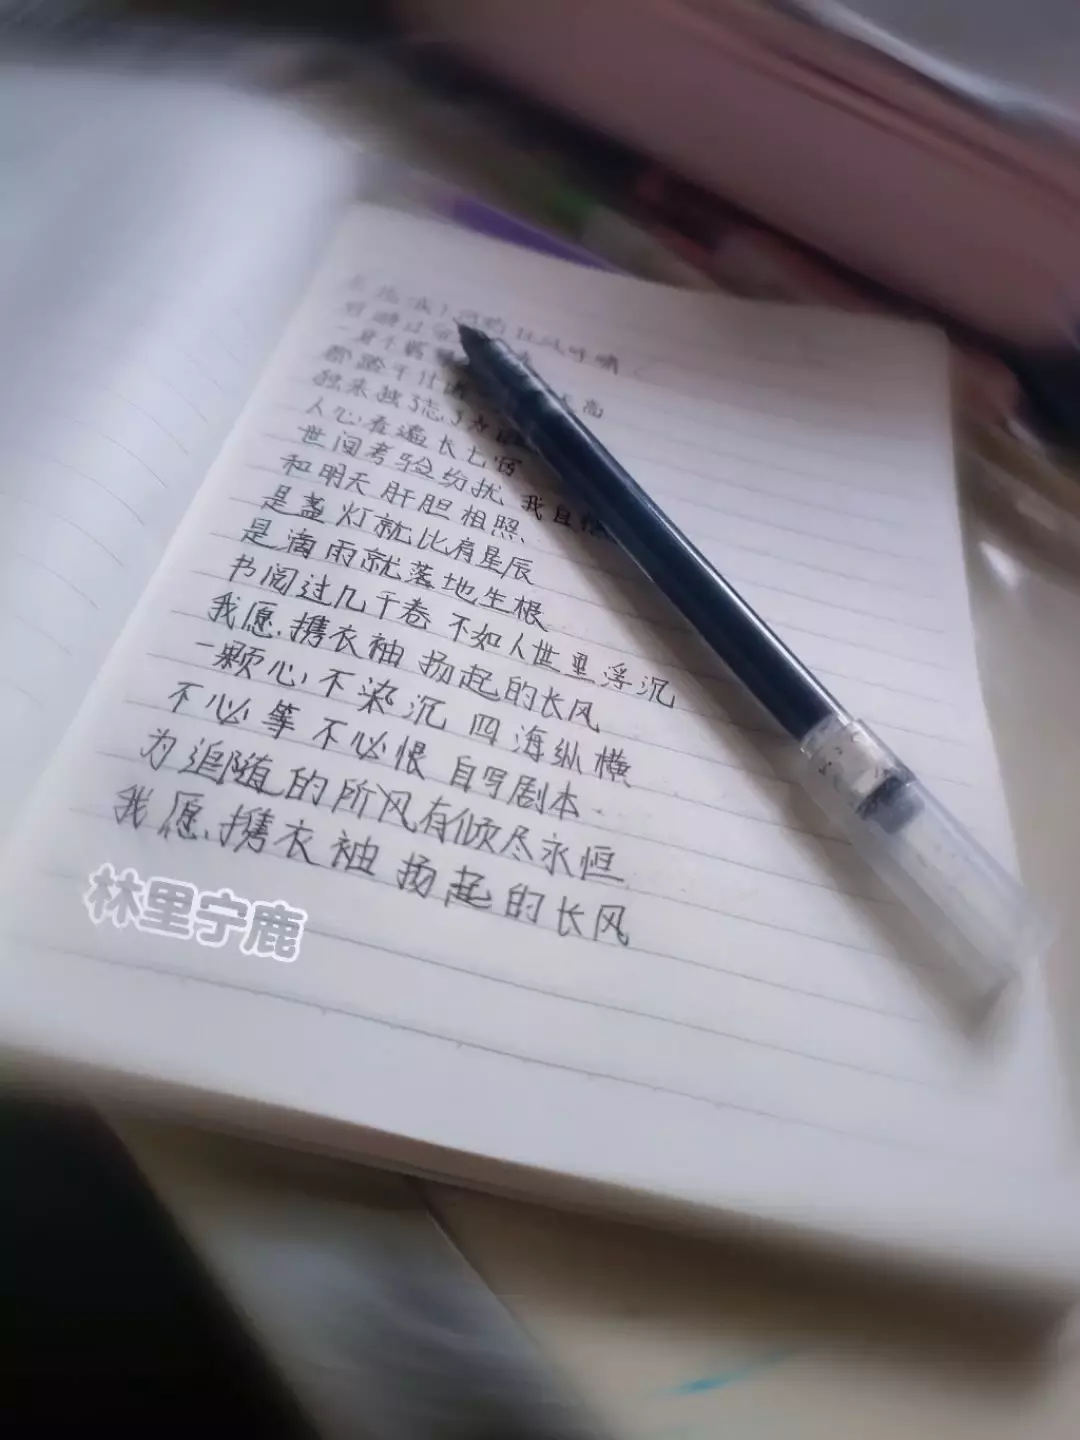 狂风呼啸
一身
都踏平 天高
独来独了忘了
人心看遍长七窍
世间考验纷扰 我自
和明天肝胆相照
是盏灯就比肩星辰
是滴雨就落地生根
书阅过几千卷 不如人世里浮沉
我愿携衣袖扬起的长风
一颗心不染沉 四海纵横
不必等不必恨 自写剧本
为追随的所风有倾尽永恒
我愿携衣袖扬起的长风
林里宁鹿